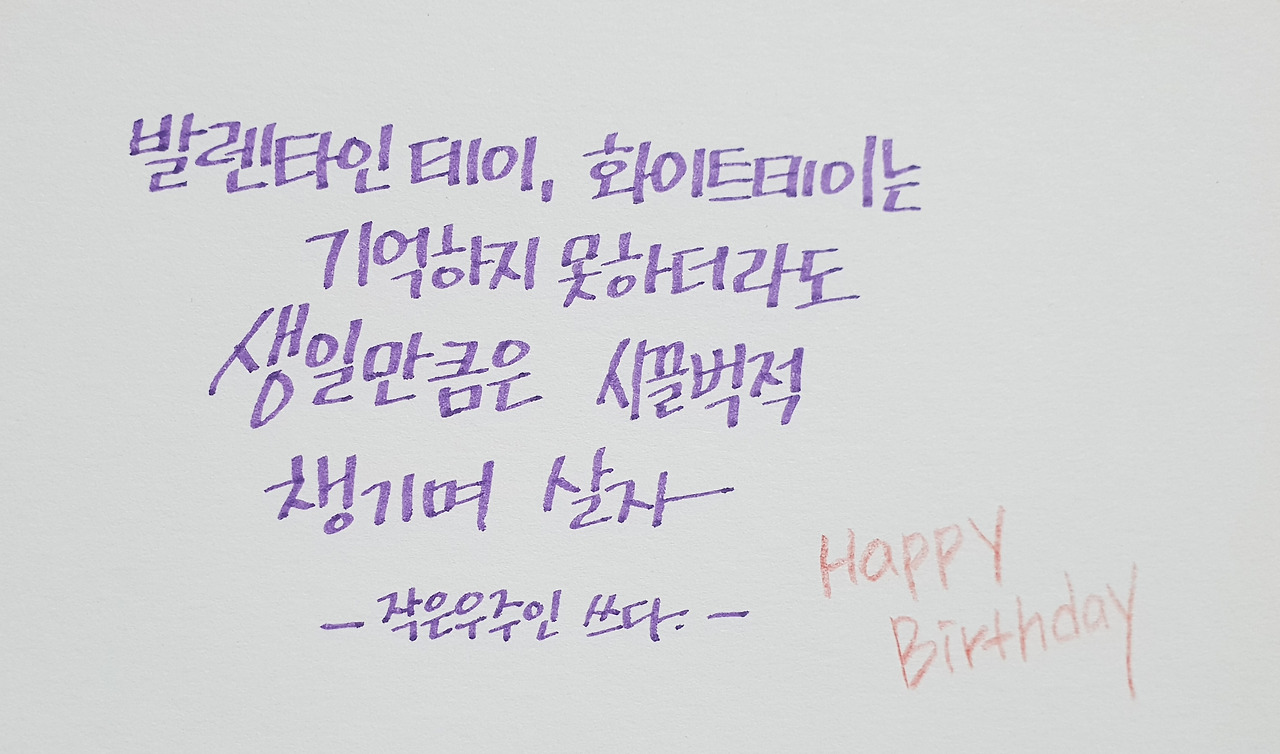 발렌타인 테이, 화이트테이는
기억하지 못하더라도
생일만큼은 시끌벅적
챙기며 살자
- 작은우주인 쓰다. -
Happy
Birthday